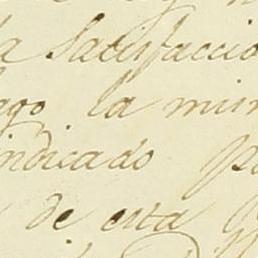 a Satisfaccio
ago la min
indicado p
de esta